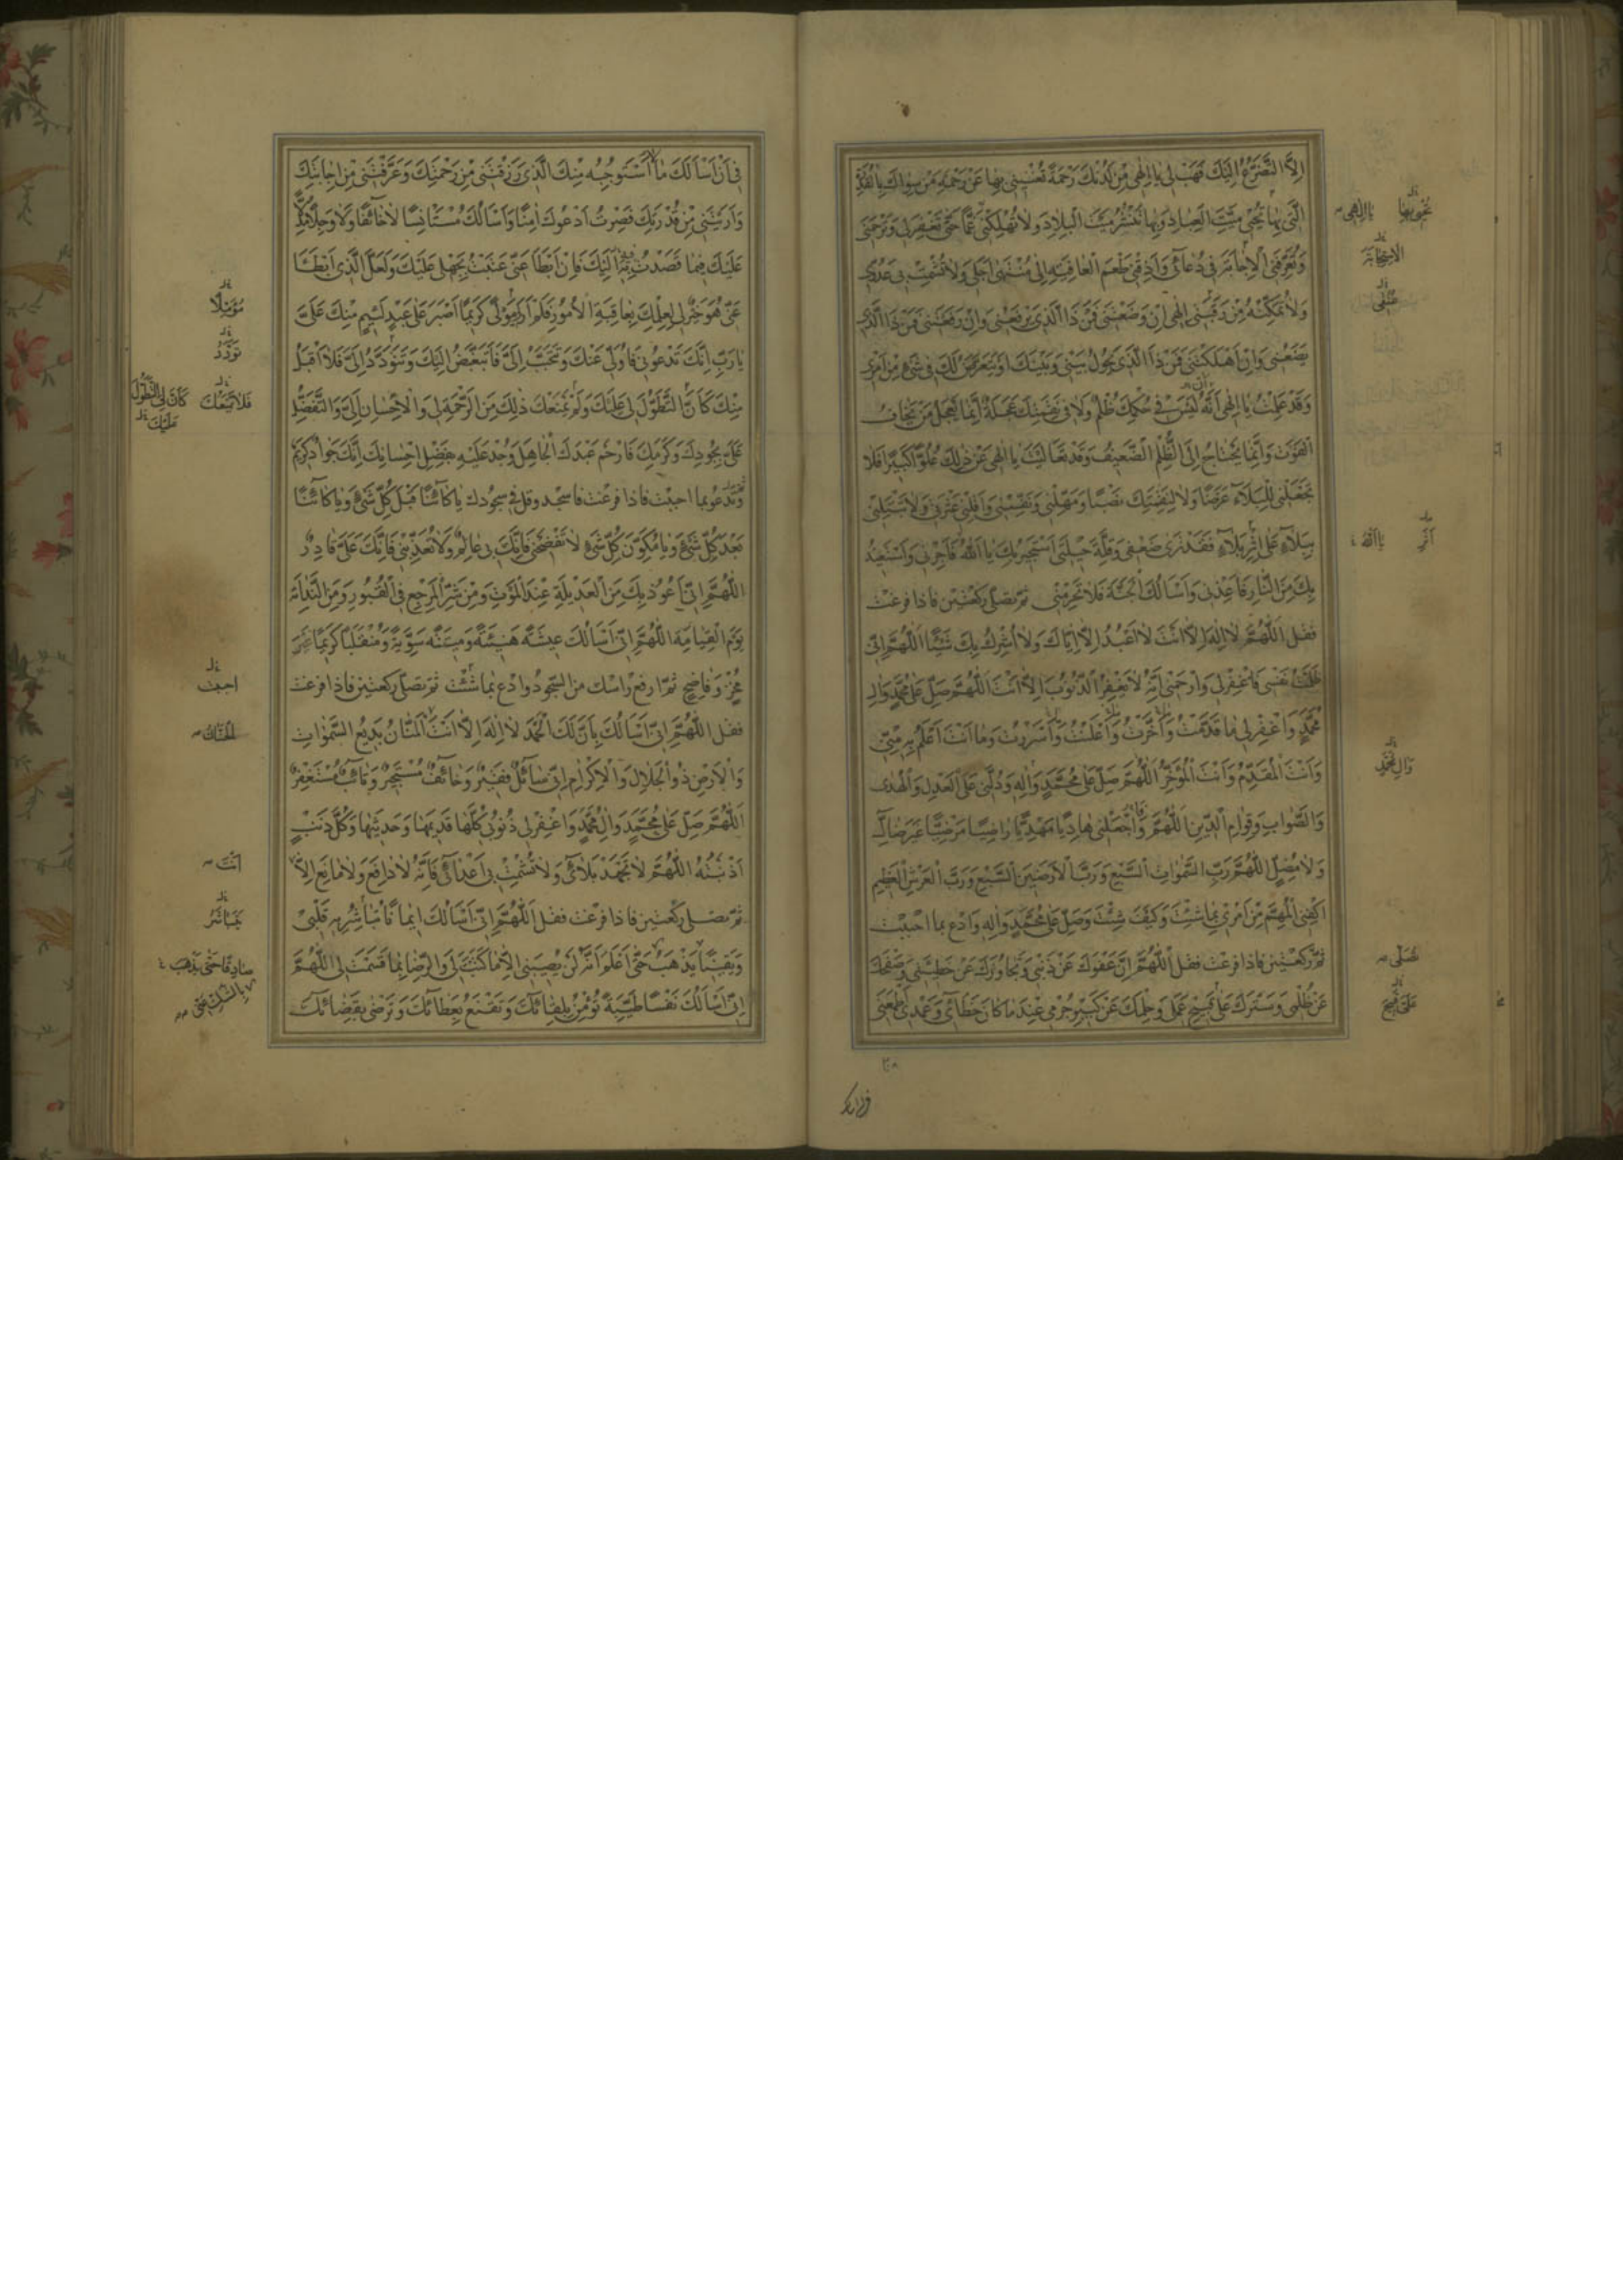 اِلَّا التَّضَرُّعُ اِلَيْكَ فَهَبْ لِي يَا اِلٰهِي مِنْ لَدُنْكَ رَحْمَةً تُغْنِينِي بِهَا عَنْ رَحْمَةِ مَنْ سِوَاكَ بِالْقُدْرَةِ
الَّتِي بِهَا تُحْيِي مَيِّتَ الْعِبَادِ وَبِهَا تَنْشُرُ مَيِّتَ الْبِلَادِ وَلَا تُهْلِكْنِي غَمًّا حَتَّى تَغْفِرَ لِي وَتَرْحَمَنِي
وَتُعَرِّفَنِي الْاِجَابَةَ فِي دُعَائِي وَاَذِقْنِي طَعْمَ الْعَافِيَةِ اِلَى مُنْتَهَى اَجَلِي وَلَا تُشْمِتْ بِي عَدُوِّي
وَلَا تُمَكِّنْهُ مِنْ رَقَبَتِي اِلٰهِي اِنْ وَضَعْتَنِي فَمَنْ ذَا الَّذِي يَرْفَعُنِي وَاِنْ رَفَعْتَنِي فَمَنْ ذَا الَّذِي
يَضَعُنِي وَاِنْ اَهْلَكْتَنِي فَمَنْ ذَا الَّذِي يَحُولُ بَيْنِي وَبَيْنَكَ اَوْ يَتَعَرَّضُ لَكَ فِي شَيْءٍ مِنْ اَمْرِي
وَقَدْ عَلِمْتُ يَا اِلٰهِي اَنَّهُ لَيْسَ فِي حُكْمِكَ ظُلْمٌ وَلَا فِي نَقِمَتِكَ عَجَلَةٌ اِنَّمَا يَعْجَلُ مَنْ يَخَافُ
الْفَوْتَ وَاِنَّمَا يَحْتَاجُ اِلَى الظُّلْمِ الضَّعِيفُ وَقَدْ تَعَالَيْتَ يَا اِلٰهِي عَنْ ذٰلِكَ عُلُوًّا كَبِيرًا فَلَا
تَجْعَلْنِي لِلْبَلَاءِ غَرَضًا وَلَا لِنَقِمَتِكَ نَصَبًا وَمَهِّلْنِي وَنَفِّسْنِي وَاَقِلْنِي عَثْرَتِي وَلَا تَبْتَلِنِي
بِبَلَاءٍ عَلَى اِثْرِ بَلَاءٍ فَقَدْ تَرَى ضَعْفِي وَقِلَّةَ حِيلَتِي اَسْتَجِيرُ بِكَ يَا اَللّٰهُ فَاَجِرْنِي وَاَسْتَعِيذُ
بِكَ مِنَ النَّارِ فَاَعِذْنِي وَاَسْاَلُكَ الْجَنَّةَ فَلَا تَحْرِمْنِي ثم تصلى ركعتين فاذا فرغت
فقل اَللّٰهُمَّ لَا اِلٰهَ اِلَّا اَنْتَ لَا اَعْبُدُ اِلَّا اِيَّاكَ وَلَا اُشْرِكُ بِكَ شَيْئًا اَللّٰهُمَّ اِنِّي
ظَلَمْتُ نَفْسِي فَاغْفِرْ لِي وَارْحَمْنِي اِنَّهُ لَا يَغْفِرُ الذُّنُوبَ اِلَّا اَنْتَ اَللّٰهُمَّ صَلِّ عَلَى مُحَمَّدٍ وَالِ
مُحَمَّدٍ وَاغْفِرْ لِي مَا قَدَّمْتُ وَاَخَّرْتُ وَاَعْلَنْتُ وَاَسْرَرْتُ وَمَا اَنْتَ اَعْلَمُ بِهِ مِنِّي
وَاَنْتَ الْمُقَدِّمُ وَاَنْتَ الْمُؤَخِّرُ اَللّٰهُمَّ صَلِّ عَلَى مُحَمَّدٍ وَالِهِ وَدُلَّنِي عَلَى الْعَدْلِ وَالْهُدَى
وَالصَّوَابِ وَقِوَامِ الدِّينِ اَللّٰهُمَّ وَاجْعَلْنِي هَادِيًا مَهْدِيًّا رَاضِيًا مَرْضِيًّا غَيْرَ ضَالٍّ
وَلَا مُضِلٍّ اَللّٰهُمَّ رَبَّ السَّمٰوَاتِ السَّبْعِ وَرَبَّ الْاَرَضِينَ السَّبْعِ وَرَبَّ الْعَرْشِ الْعَظِيمِ
اكْفِنِي الْمُهِمَّ مِنْ اَمْرِي بِمَا شِئْتَ وَكَيْفَ شِئْتَ وَصَلِّ عَلَى مُحَمَّدٍ وَالِهِ وَادع بما احببت
ثم ركعتين فاذا فرغت فقل اَللّٰهُمَّ اِنَّ عَفْوَكَ عَنْ ذَنْبِي وَتَجَاوُزَكَ عَنْ خَطِيئَتِي وَصَفْحَكَ
عَنْ ظُلْمِي وَسَتْرَكَ عَلَى قَبِيحِ عَمَلِي وَحِلْمَكَ عَنْ كَبِيرِ جُرْمِي عِنْدَ مَا كَانَ خَطَائِي وَعَمْدِي اَطْمَعَنِي
يَا اِلٰهِي
الاستجابة
عُنُقِي
يَا اَللّٰهُ
وَالِ مُحَمَّدٍ
تصلى
فِي اَنْ اَسْاَلَكَ مَا لَا اَسْتَوْجِبُهُ مِنْكَ الَّذِي رَزَقْتَنِي مِنْ رَحْمَتِكَ وَعَرَّفْتَنِي مِنْ اِجَابَتِكَ
وَاَرَيْتَنِي مِنْ قُدْرَتِكَ فَصِرْتُ اَدْعُوكَ اٰمِنًا وَاَسْاَلُكَ مُسْتَاْنِسًا لَا خَائِفًا وَلَا وَجِلًا مُدِلًّا
عَلَيْكَ فِيمَا قَصَدْتُ بِهِ اِلَيْكَ فَاِنْ اَبْطَاَ عَنِّي عَتَبْتُ بِجَهْلِي عَلَيْكَ وَلَعَلَّ الَّذِي اَبْطَاَ
عَنِّي هُوَ خَيْرٌ لِي لِعِلْمِكَ بِعَاقِبَةِ الْاُمُورِ فَلَمْ اَرَ مَوْلًى كَرِيمًا اَصْبَرَ عَلَى عَبْدٍ لَئِيمٍ مِنْكَ عَلَيَّ
يَا رَبِّ اِنَّكَ تَدْعُونِي فَاُوَلِّي عَنْكَ وَتَتَحَبَّبُ اِلَيَّ فَاَتَبَغَّضُ اِلَيْكَ وَتَتَوَدَّدُ اِلَيَّ فَلَا اَقْبَلُ
مِنْكَ كَاَنَّ التَّطَوُّلَ لِي عَلَيْكَ وَلَمْ يَمْنَعْكَ ذٰلِكَ مِنَ الرَّحْمَةِ لِي وَالْاِحْسَانِ اِلَيَّ وَالتَّفَضُّلِ
عَلَيَّ بِجُودِكَ وَكَرَمِكَ فَارْحَمْ عَبْدَكَ الْجَاهِلَ وَجُدْ عَلَيْهِ بِفَضْلِ اِحْسَانِكَ اِنَّكَ جَوَادٌ كَرِيمٌ
وتدعو بما احببت فاذا فرغت فاسجد وقل في سجودك يَا كَائِنًا قَبْلَ كُلِّ شَيْءٍ وَيَا كَائِنًا
بَعْدَ كُلِّ شَيْءٍ وَيَا مُكَوِّنَ كُلِّ شَيْءٍ لَا تَفْضَحْنِي فَاِنَّكَ بِي عَالِمٌ وَلَا تُعَذِّبْنِي فَاِنَّكَ عَلَيَّ قَادِرٌ
اَللّٰهُمَّ اِنِّي اَعُوذُ بِكَ مِنَ الْعَدِيلَةِ عِنْدَ الْمَوْتِ وَمِنْ شَرِّ الْمَرْجِعِ فِي الْقُبُورِ وَمِنَ النَّدَامَةِ
يَوْمَ الْقِيَامَةِ اَللّٰهُمَّ اِنِّي اَسْاَلُكَ عِيشَةً هَنِيئَةً وَمِيتَةً سَوِيَّةً وَمُنْقَلَبًا كَرِيمًا غَيْرَ
مُخْزٍ وَفَاضِحٍ ثم ارفع راسك من السجود وادع بما شئت ثم تصلى ركعتين فاذا فرغت
فقل اَللّٰهُمَّ اِنِّي اَسْاَلُكَ بِاَنَّ لَكَ الْحَمْدَ لَا اِلٰهَ اِلَّا اَنْتَ الْمَنَّانُ بَدِيعُ السَّمٰوَاتِ
وَالْاَرْضِ ذُو الْجَلَالِ وَالْاِكْرَامِ اِنِّي سَائِلٌ فَقِيرٌ وَخَائِفٌ مُسْتَجِيرٌ وَتَائِبٌ مُسْتَغْفِرٌ
اَللّٰهُمَّ صَلِّ عَلَى مُحَمَّدٍ وَالِ مُحَمَّدٍ وَاغْفِرْ لِي ذُنُوبِي كُلَّهَا قَدِيمَهَا وَحَدِيثَهَا وَكُلَّ ذَنْبٍ
اَذْنَبْتُهُ اَللّٰهُمَّ لَا تَجْهَدْ بَلَائِي وَلَا تُشْمِتْ بِي اَعْدَائِي فَاِنَّهُ لَا دَافِعَ وَلَا مَانِعَ اِلَّا
ثم تصلى ركعتين فاذا فرغت فقل اَللّٰهُمَّ اِنِّي اَسْاَلُكَ اِيمَانًا تُبَاشِرُ بِهِ قَلْبِي
وَيَقِينًا يَذْهَبُ حَتَّى اَعْلَمَ اَنَّهُ لَنْ يُصِيبَنِي اِلَّا مَا كَتَبْتَ لِي وَالرِّضَا بِمَا قَسَمْتَ لِي اَللّٰهُمَّ
اِنِّي اَسْاَلُكَ نَفْسًا طَيِّبَةً تُؤْمِنُ بِلِقَائِكَ وَتَقْنَعُ بِعَطَائِكَ وَتَرْضَى بِقَضَائِكَ
كَاَنَّ لِي التَّطَوُّلَ
عَلَيْكَ
احببت
اَنْتَ